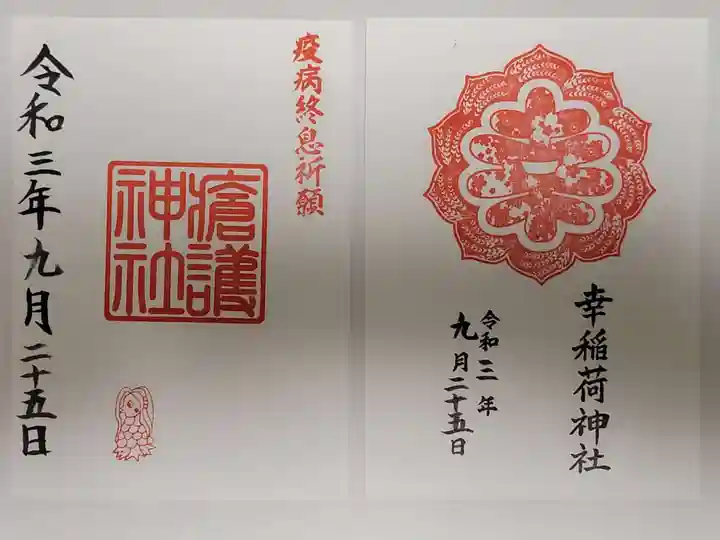 疫病終息祈願
瘡護
神社
令和三年九月二十五日
幸稲荷神社
令和三年
九月二十五日